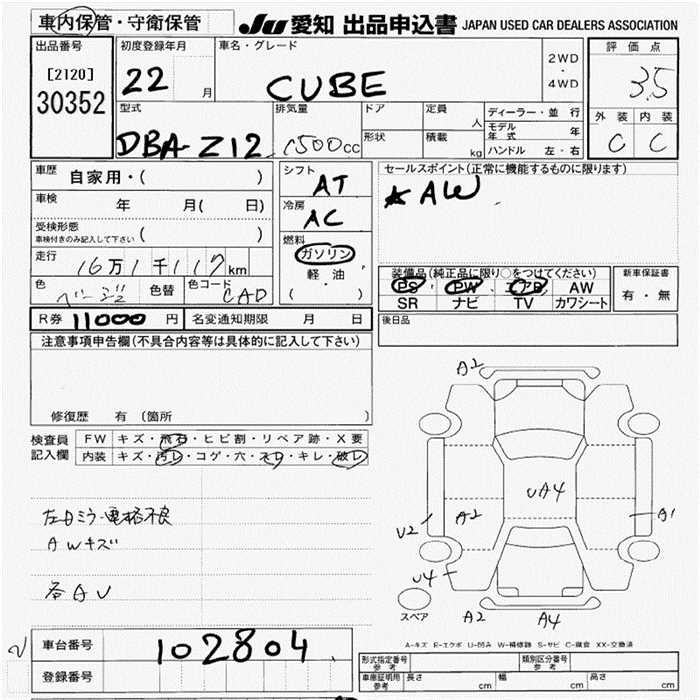 車内保管・守衛保管
JU 愛知 出品申込書 JAPAN USED CAR DEALERS ASSOCIATION
出品番号
[2120]
30352
初度登録年月
22 月
車名・グレード
CUBE
2WD
・
4WD
評価点
3.5
外装 内装
C C
型式
DBA-Z12
排気量
1500cc
ドア
形状
定員 人
積載 kg
ディーラー・並行
モデル年式 年
ハンドル 左・右
車歴
自家用・( )
車検
年 月( 日)
受検形態
車検付きのみ記入して下さい ( )
走行
16万1千117km
色
ベージュ
色替
色コード
CAD
シフト
AT
冷房
AC
燃料
ガソリン
軽油
( ・ )
セールスポイント(正常に機能するものに限ります)
★AW
装備品(純正品に限り○をつけてください)
PS PW エアB AW
SR ナビ TV カワシート
新車保証書
有・無
R券 11000 円 名変通知期限 月 日
後日品
注意事項申告欄(不具合内容等は具体的に記入して下さい)
修復歴 有(箇所 )
検査員
記入欄
FW キズ・飛石・ヒビ割・リペア跡・X要
内装 キズ・汚レ・コゲ・穴・スレ・キレ・破レ
左日ミラー電格不良
AWキズ
各AU
A2
UA4
U2
A2
A1
U4
スペア
A2
A4
A-キズ E-エクボ U-凹み W-補修跡 S-サビ C-腐食 XX-交換済
車台番号
102804
登録番号
形式指定番号
参考
類別区分番号
参考
車庫証明用
参考
長さ cm 幅 cm 高さ cm